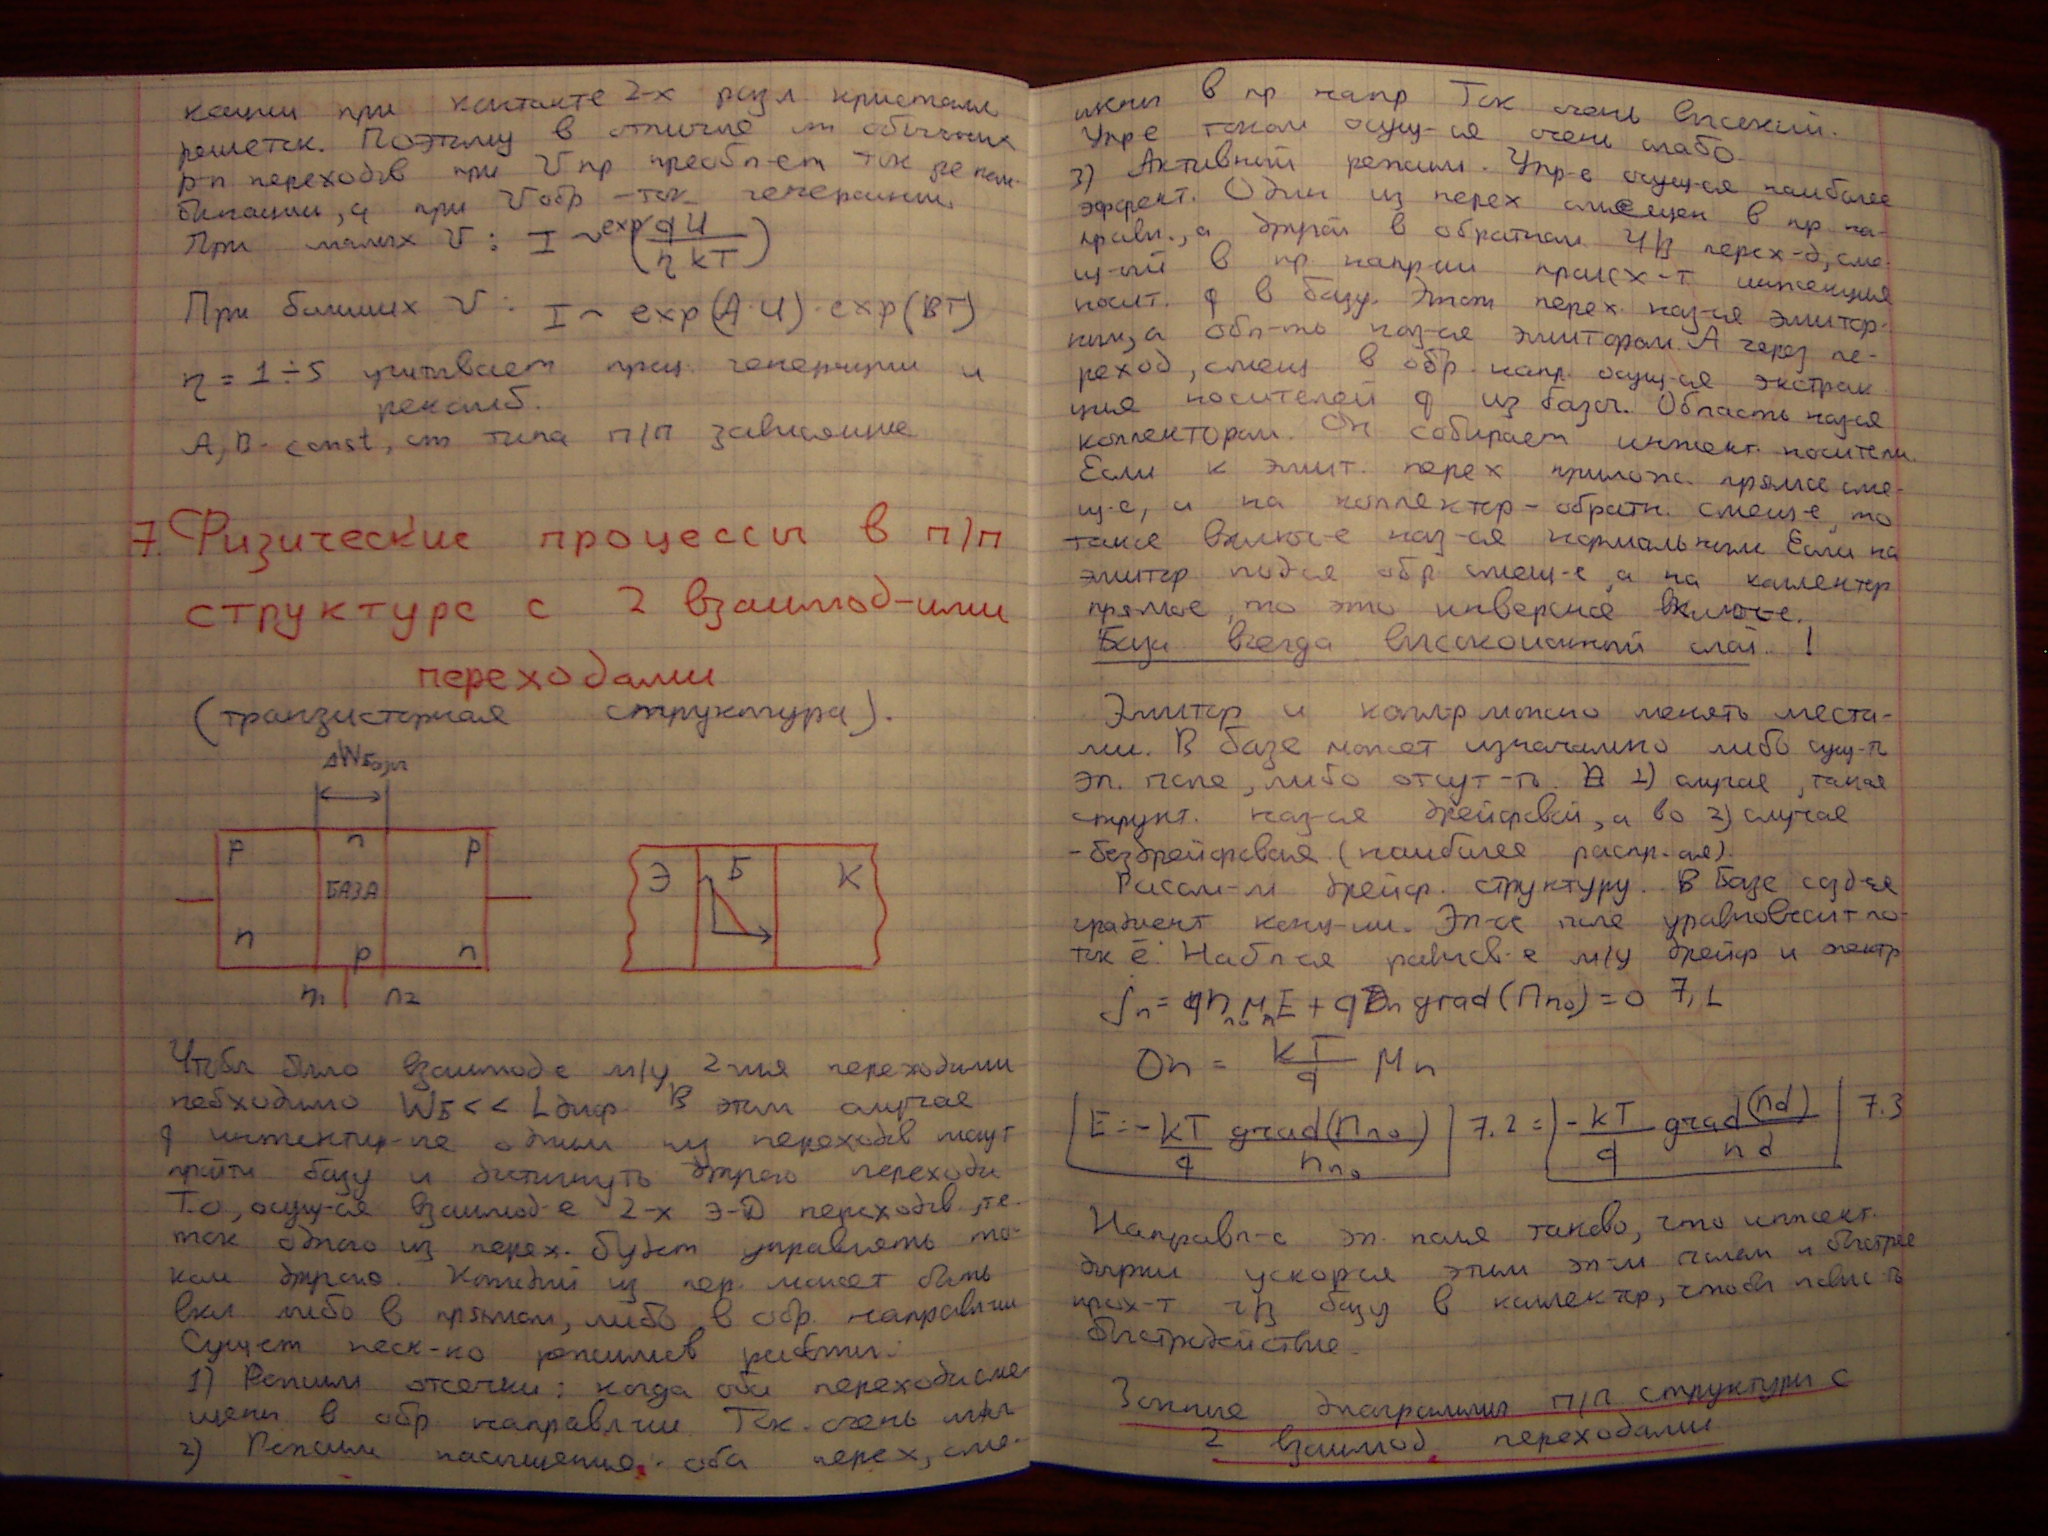 кации при контакте 2-х разл кристалл
решеток. Поэтому в отличие от обычных
p-n переходов при Uпр преобл-ет ток реком-
бинации, а при Uобр - ток генерации.
При малых U: I ~ exp(qU/ηkT)
При больших U: I ~ exp(A·U)·exp(BT)
η = 1÷5 учитывает проц. генерации и
рекомб.
A, B - const, от типа п/п зависящие
7. Физические процессы в п/п
структуре с 2 взаимод-ими
переходами
(транзисторная структура).
ΔWбазы
p n p
БАЗА
n p n
n1 n2
Э Б К
Чтобы было взаимод-е м/у 2-мя переходами
необходимо WБ << Lдиф. В этом случае
q инжектир-ые одним из переходов могут
пройти базу и достигнуть другого перехода
Т.о, осущ-ся взаимод-е 2-х Э-Д переходов, те.
ток одного из перех. будет управлять то-
ком другого. Каждый из пер. может быть
вкл либо в прямом, либо в обр. направл-ии
Сущест неск-ко режимов работы:
1) Режим отсечки: когда оба перехода сме-
щены в обр. направл-ии Ток очень мал
2) Режим насыщения: оба перех, сме-
щены в пр напр Ток очень высокий.
Упр-е током осущ-ся очень слабо.
3) Активный режим. Упр-е осущ-ся наиболее
эффект. Один из перех смещен в пр на-
правл., а другой в обратном Ч/з перех-д, сме-
щ-ый в пр направ-ии происх-т инжекция
носит. q в базу. Этот перех. наз-ся эмиттор-
ным, а обл-ть наз-ся эмиттором. А через пе-
реход, смещ в обр. напр. осущ-ся экстрак
ция носителей q из базы. Область наз-ся
коллектором. Он собирает инжект. носители.
Если к эмит. перех прилож. прямое сме-
щ-е, а на коллектор - обратн. смещ-е, то
такое включ-е наз-ся нормальным Если на
эмитор подся обр смещ-е, а на коллектор
прямое, то это инверсное включ-е.
База всегда высокоомный слой. !
Эмитор и колл-р можно менять места-
ми. В базе может изначально либо сущ-ть
эл. поле, либо отсут-ть. В 1) случае, такая
структ. наз-ся дрейфовой, а во 2) случае
- бездрейфовая (наиболее распр-ая).
Рассм-м дрейф. структуру. В базе созд-ся
градиент конц-ии. Эл-ое поле уравновесит по-
ток ē. Набл-ся равнов-е м/у дрейф и электр
Jn = q nn0 μn E + q Dn grad(nn0) = 0 7.1
Dn = kT/q μn
E = - kT/q grad(nn0)/nn0 7.2 = - kT/q grad(nd)/nd 7.3
Направл-е эл. поля таково, что инжект.
дырки ускор-ся этим эл-м полем и быстрее
прох-т ч/з базу в коллектор, чтобы повыс-ть
быстродействие.
Зонные диаграммы п/п структуры с
2 взаимод. переходами